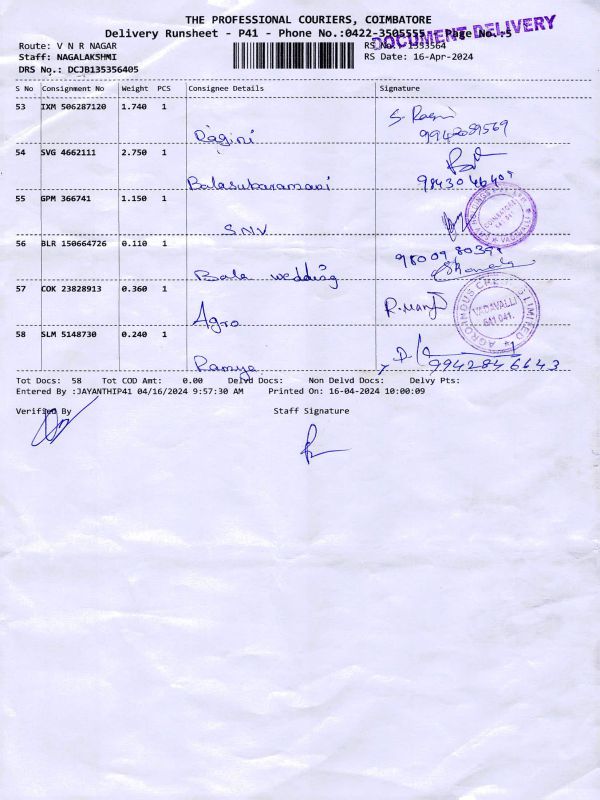 THE PROFESSIONAL COURIERS, COIMBATORE
DOCUMENT DELIVERY
Delivery Runsheet - P41 - Phone No.:0422-3505555 Page No.:5
Route: V N R NAGAR
RS No.: 1333564
Staff: NAGALAKSHMI
RS Date: 16-Apr-2024
DRS No.: DCJB135356405
S No Consignment No Weight PCS Consignee Details Signature
53 IXM 506287120 1.740 1
S. Ragini
9942039569
Ragini
54 SVG 4662111 2.750 1
Balasubaramani
55 GPM 366741 1.150 1
SNV
56 BLR 150664726 0.110 1
Bala wedding
57 COK 23828913 0.360 1
R. Manj
Agro
VADAVALLI
641 041.
58 SLM 5148730 0.240 1
Ramya
9942846643
Tot Docs: 58 Tot COD Amt: 0.00 Delvd Docs: Non Delvd Docs: Delvy Pts:
Entered By :JAYANTHIP41 04/16/2024 9:57:30 AM Printed On: 16-04-2024 10:00:09
Verified By Staff Signature